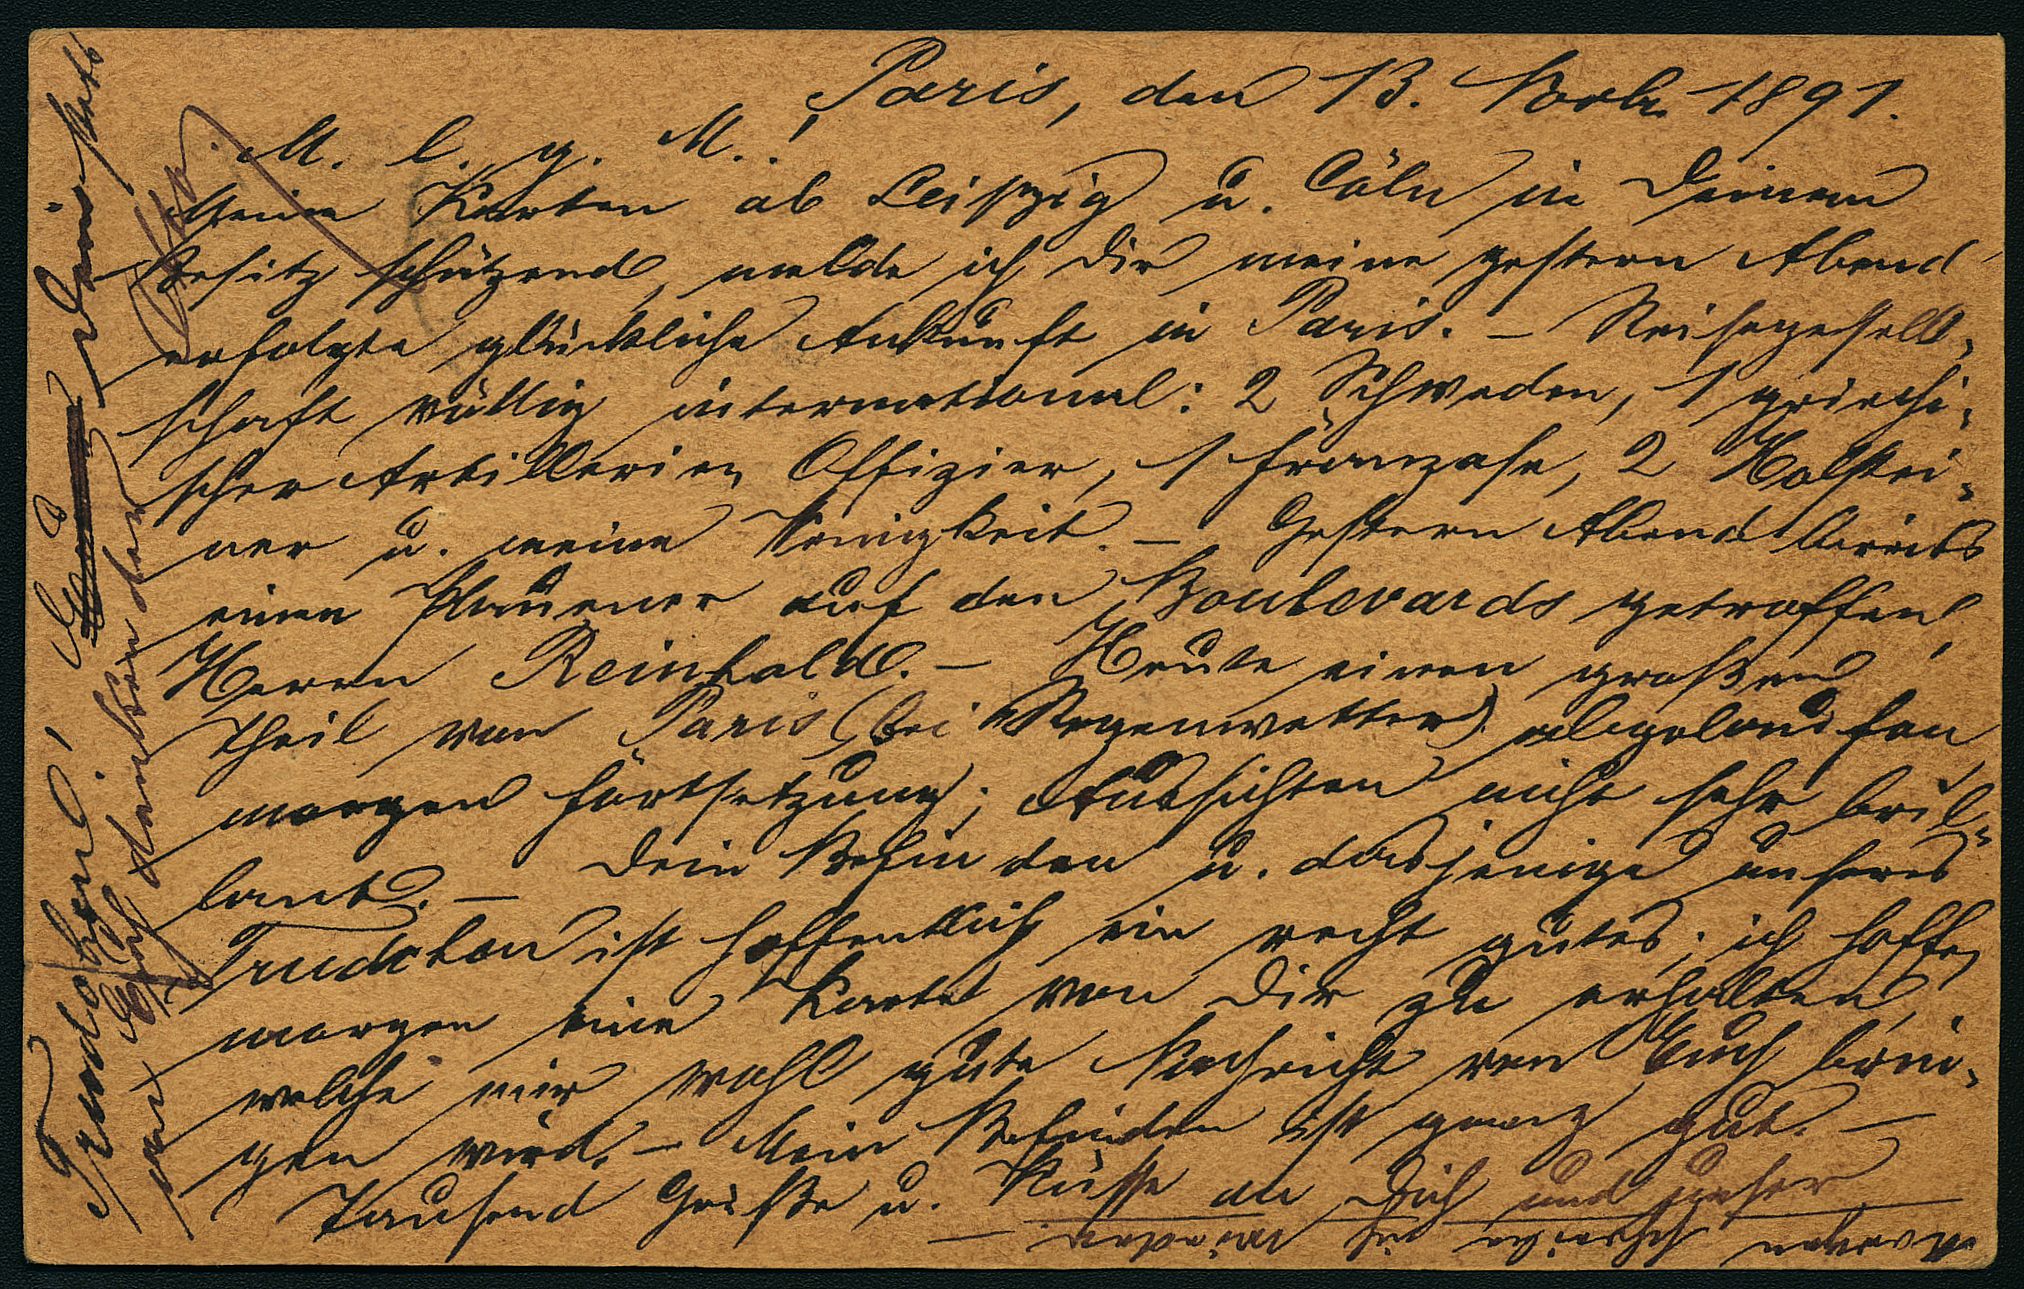 Paris, den 13. Novbr. 1891.
M. l. g. M.!
Meine Karten ab Leipzig u. Cöln in Deinem
Besitz schätzend, melde ich Dir meine gestern Abend
erfolgte glückliche Ankunft in Paris. – Reisegesell-
schaft völlig international: 2 Schweden, 1 griechi-
scher Artillerie Offizier, 1 Franzose, 2 Holstei-
ner u. meine Wenigkeit. – Gestern Abend bereits
einen Plauener auf den Boulevards getroffen,
Herrn Reinhold. – Heute einen großen
Theil von Paris (bei Regenwetter) abgelaufen
morgen Fortsetzung; Aussichten nicht sehr bril-
lant. – Dein Befinden u. dasjenige unseres
Trudchen ist hoffentlich ein recht gutes; ich hoffe,
morgen eine Karte von Dir zu erhalten,
welche mir wohl gute Nachricht von Euch brin-
gen wird. – Mein Befinden ist ganz gut. –
Tausend Grüße u. Küsse an Dich und unser
Trudchen! Dein stets
an Euch denkender
Otto.
Morgen schreibe ich wieder. –